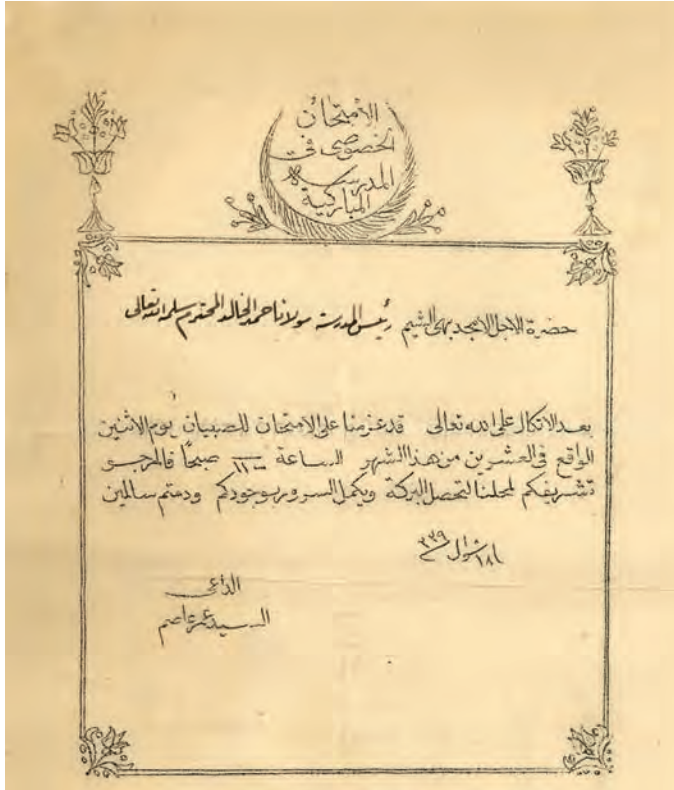 الامتحان
الخصوصي في
المدرسة
المباركية
حضرة الاجل الامجد بهي الشيم رئيس المدرسة مولانا حمد الخالد المحترم سلمه الله تعالى
بعد الاتكال على الله تعالى قد عزمنا على الامتحان للصبيان يوم الاثنين
الواقع في العشرين من هذا الشهر الساعة صبحًا فالمرجو
تشريفكم لمحلنا لتحصل البركة ويكمل السرور بوجودكم ودمتم سالمين
١٨ شوال ٣٣٩
الداعي
السيد عمر عاصم